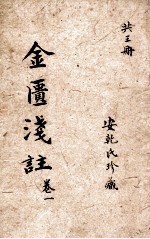 共三册
金匱淺註
卷一
安乾氏珍藏